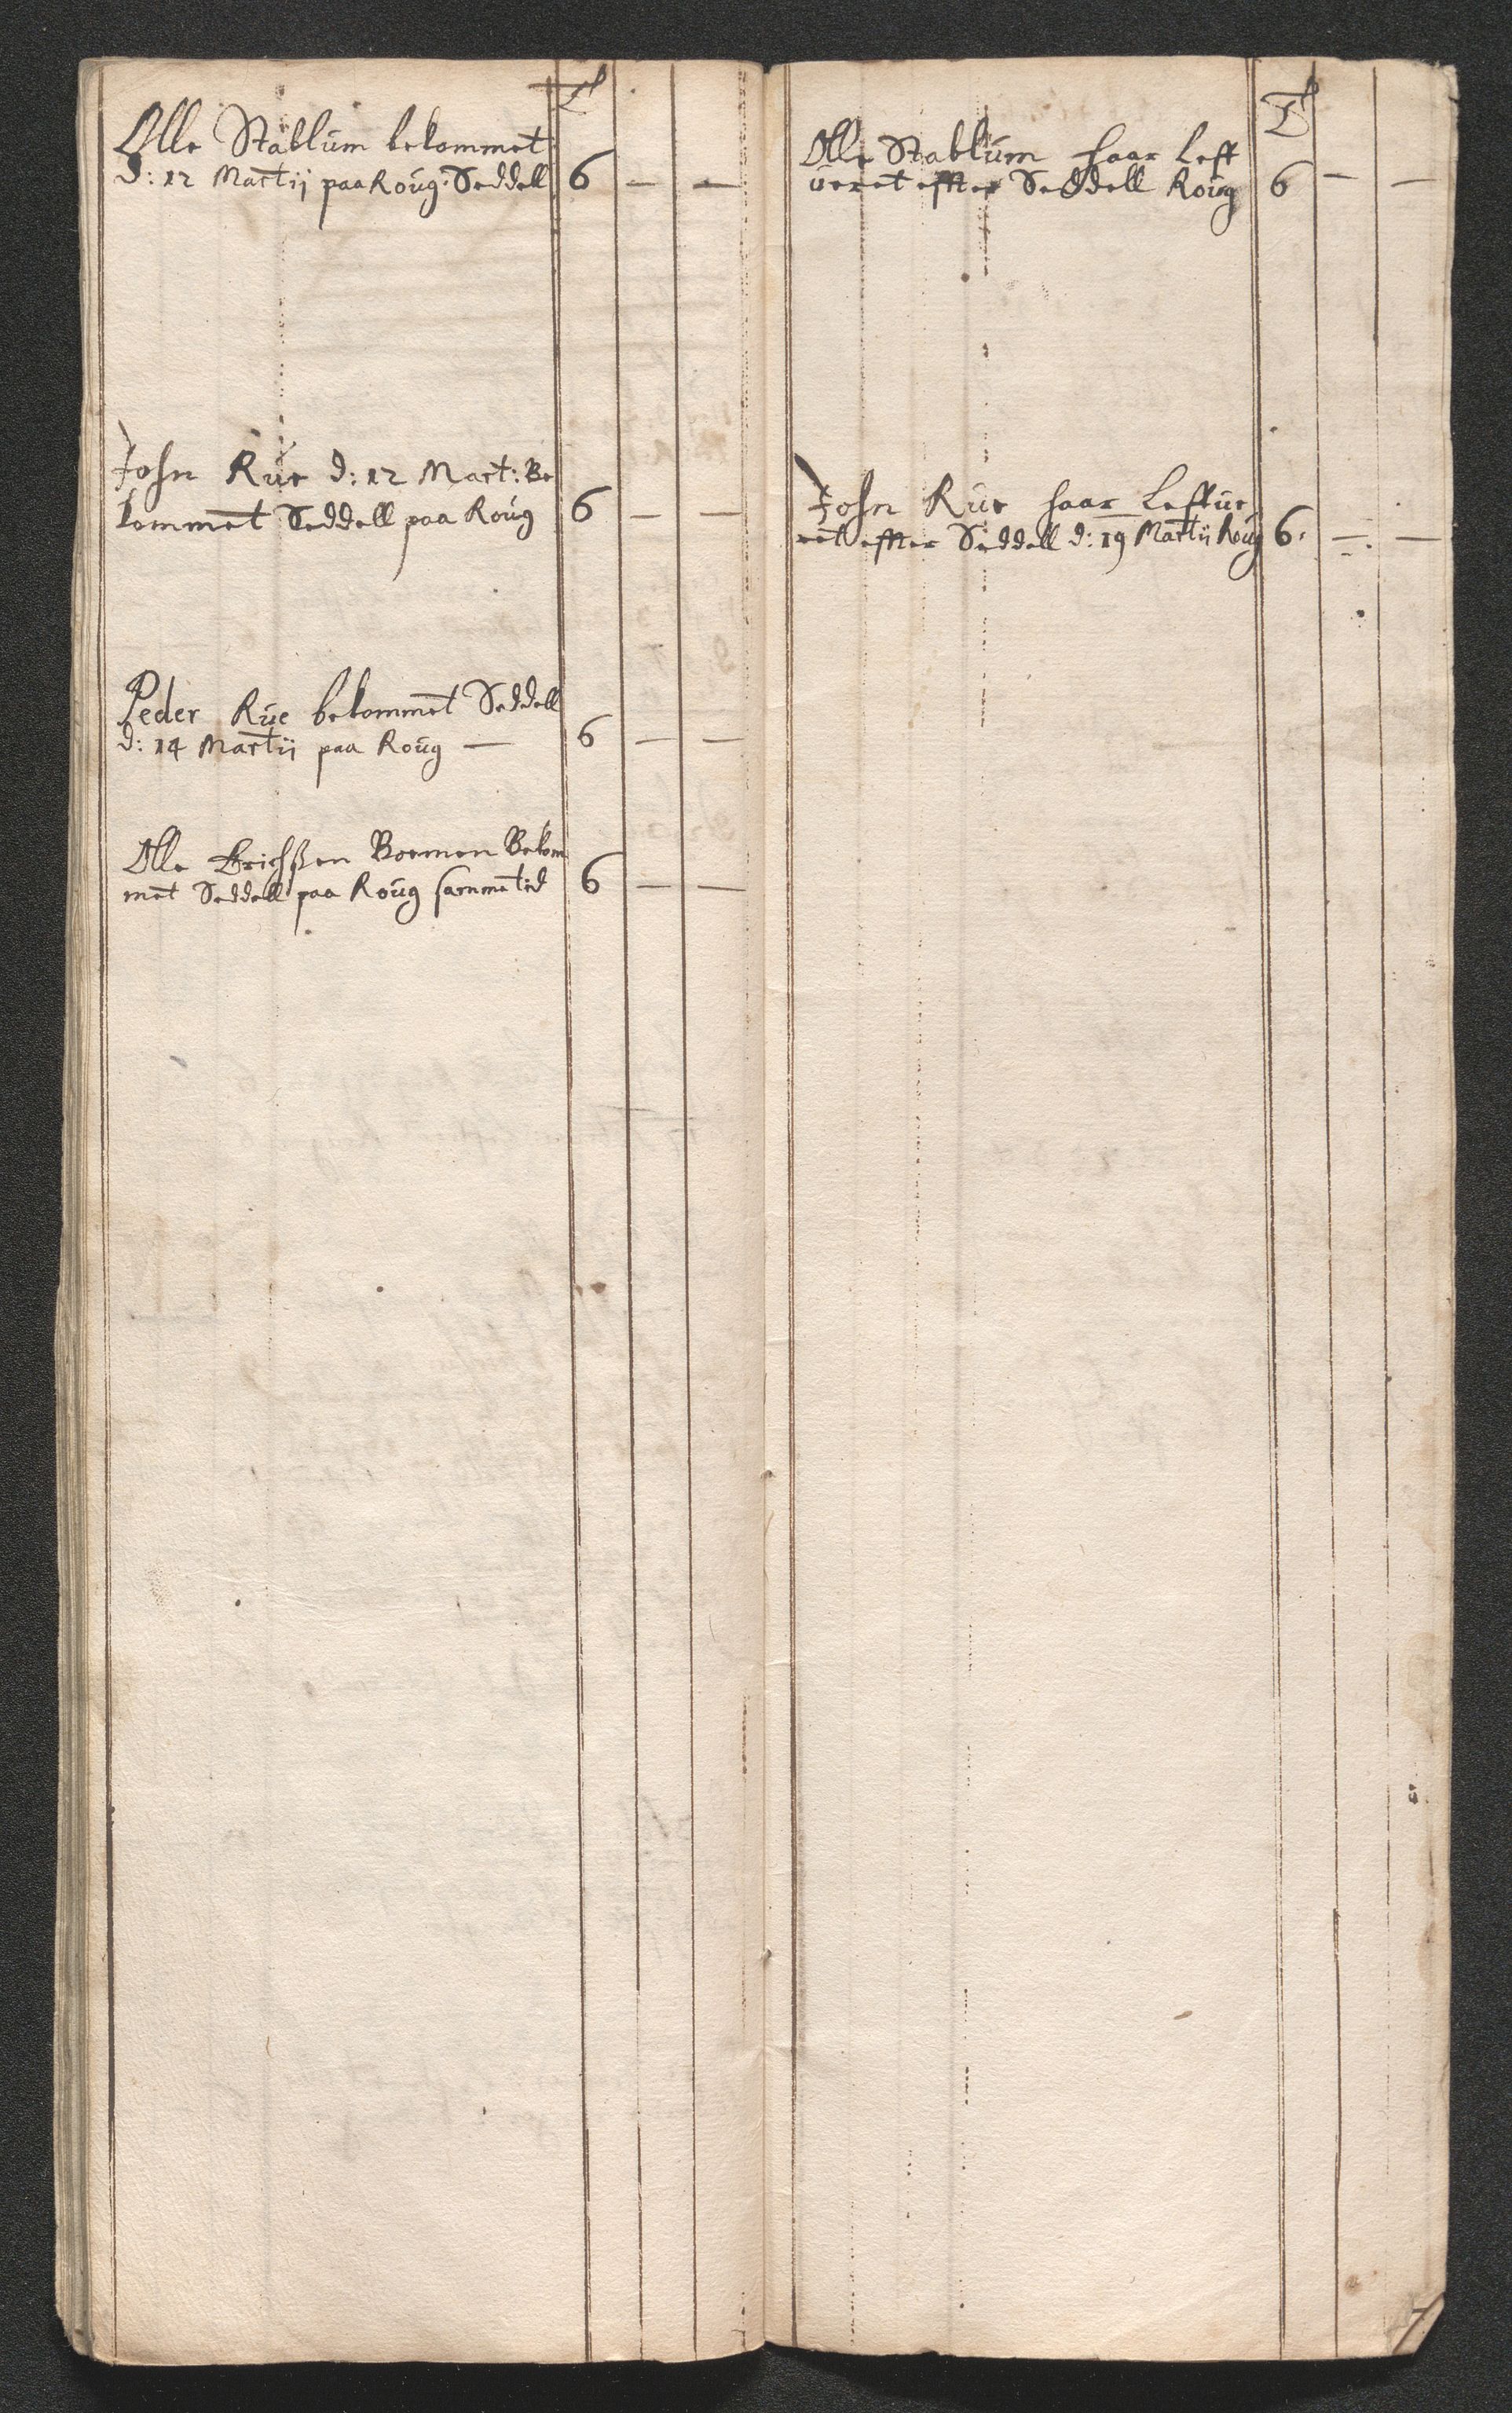 Tl
Olle Stablum bekommet
d: 12 Martij paa Roug Seddell 6 — —
John Rue d: 12 Mart: Be
kommet Seddell paa Roug 6 — —
Peder Rue bekommet Seddell
d: 14 Martii paa Roug — 6 — —
Olle Erichßen Boemen Bekom
met Seddell paa Roug samme tid 6 — —
Olle Stablum haar Leff
ueret effter Seddell Roug 6 — —
John Rue haar Leffue
ret effter Seddell d: 19 Martii Roug 6 — —